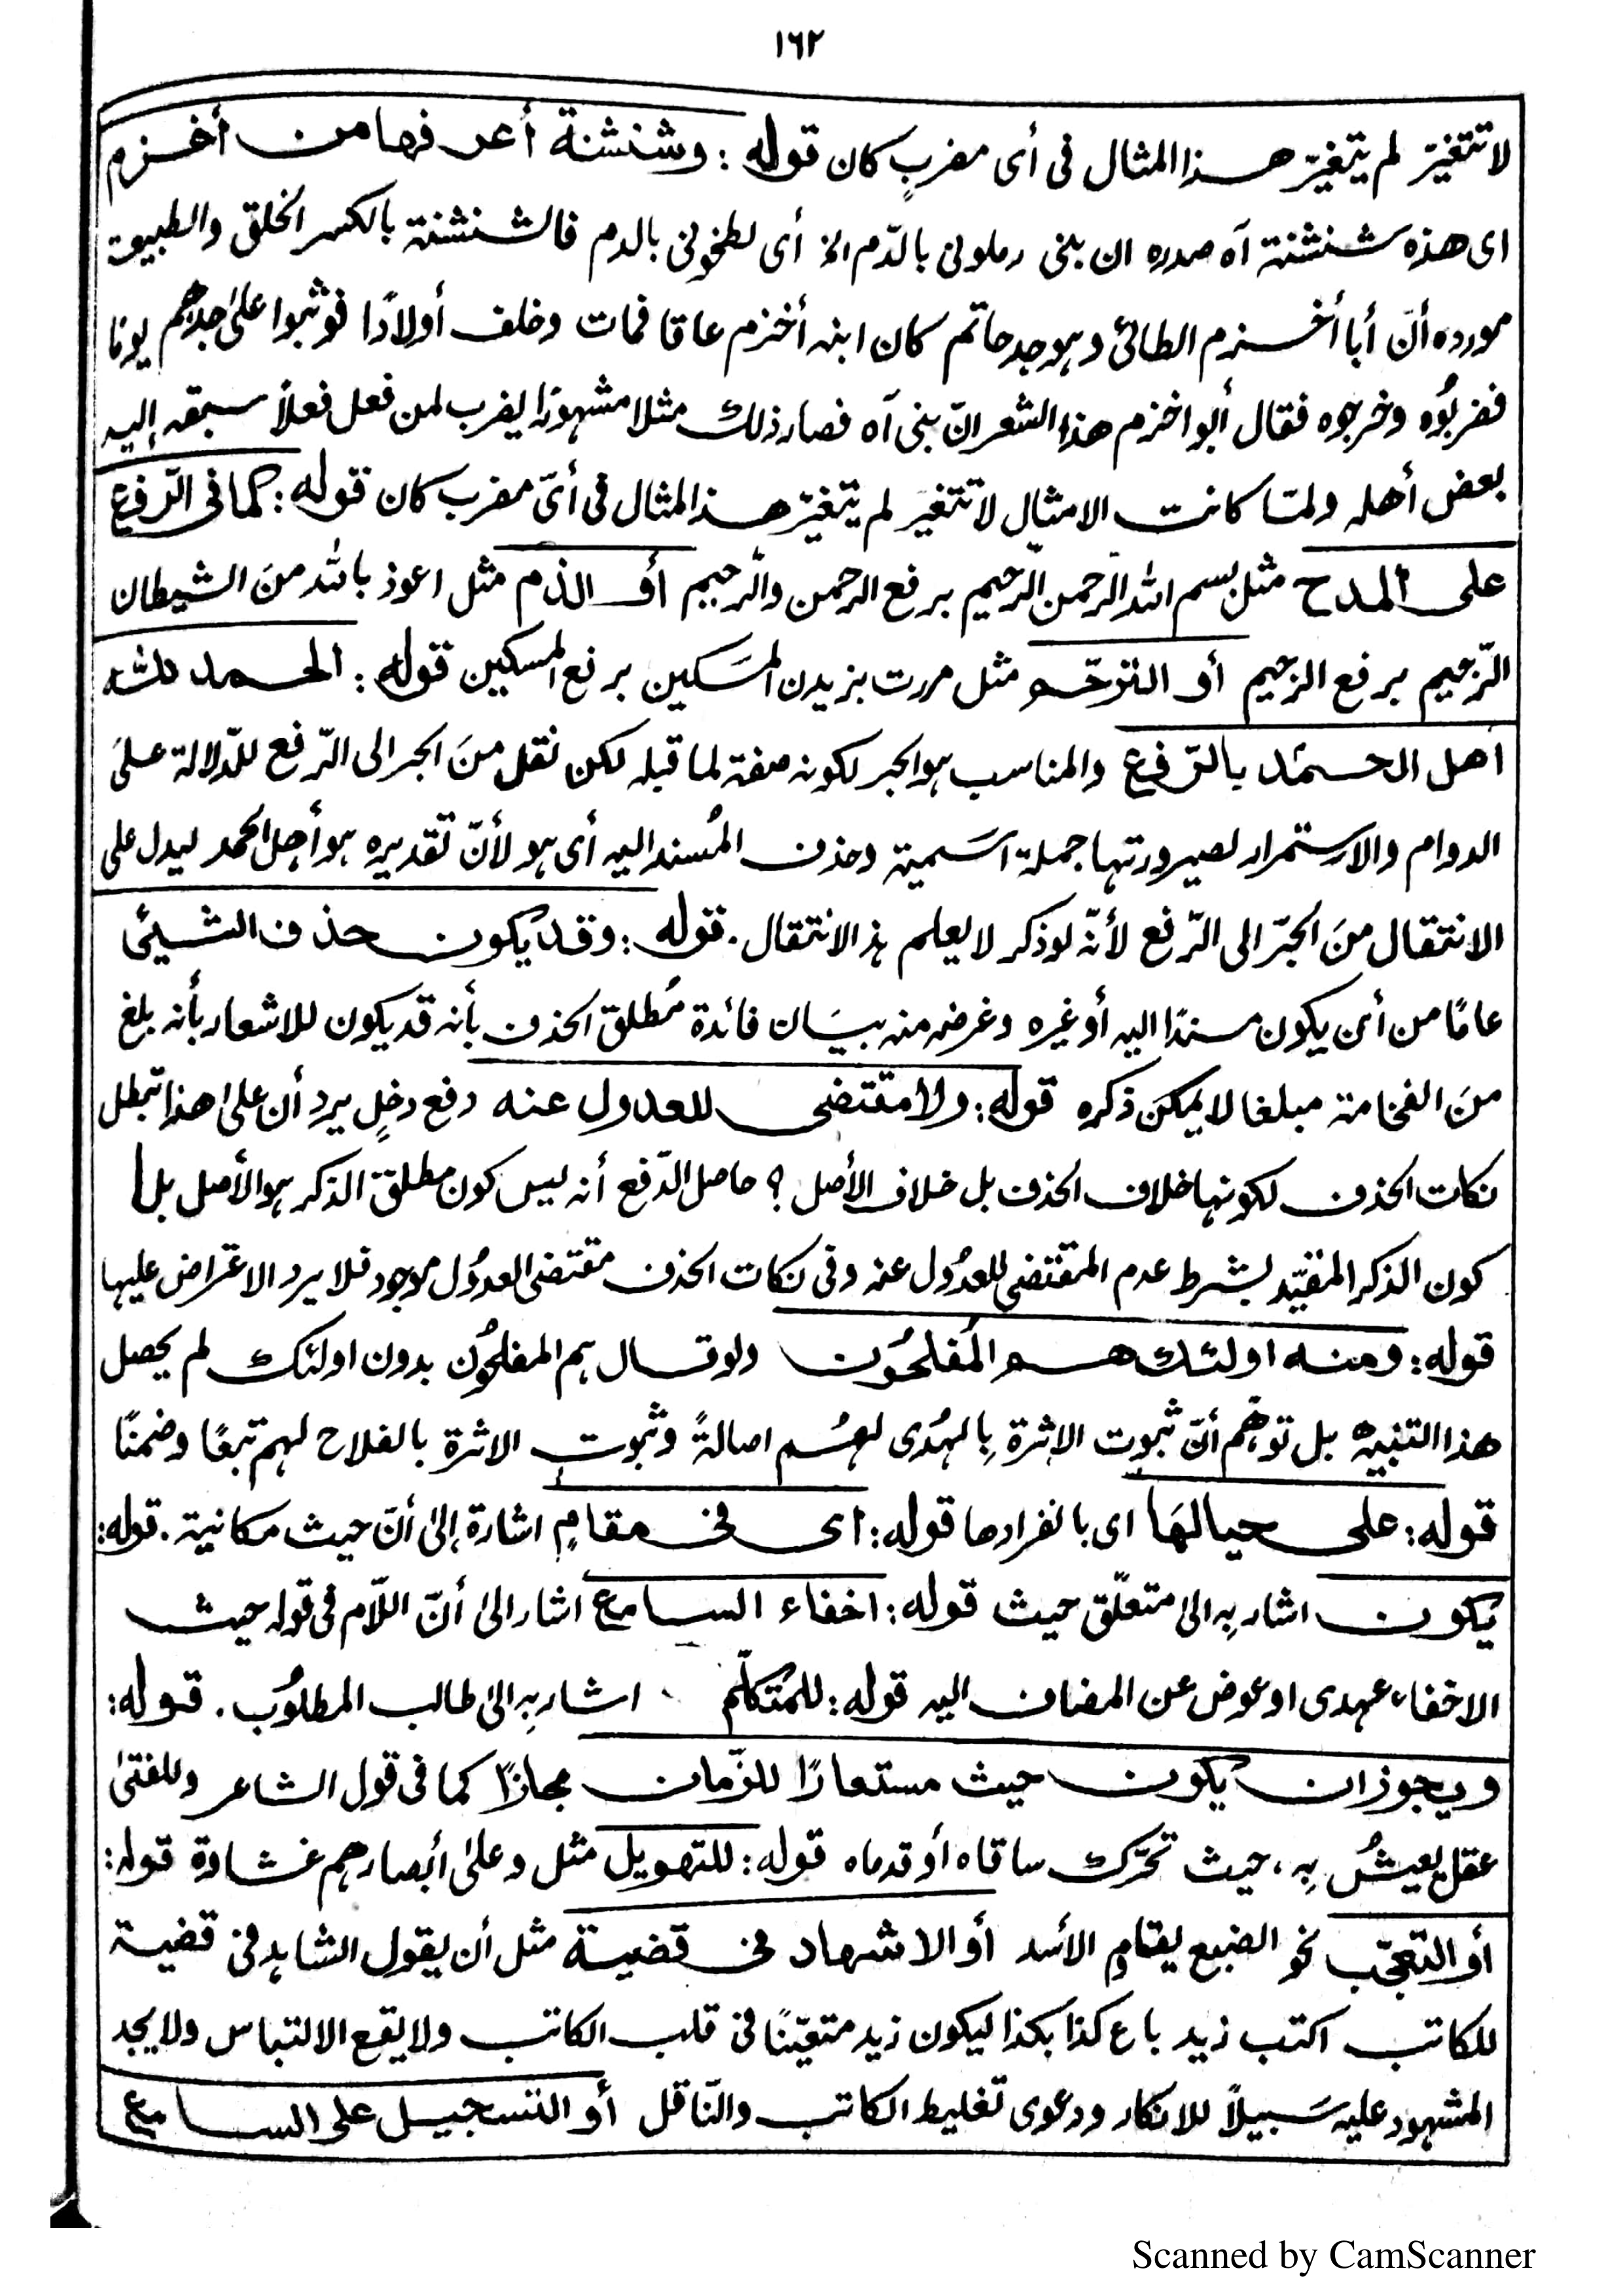 ١٦٢
لا تتغيّر لم يتغيّر هذا المثال فى أى مضربٍ كان قوله : وشنشنة أعرفها من أخزم
اى هذه شنشنة آه صدره ان بنى رملونى بالدّم الخ أى لطخونى بالدم فالشنشنة بالكسر الخلق والطبيعة
مورده أنّ أبا أخزم الطائى وهو جد حاتم كان ابنه أخزم عاقا فمات وخلف أولادًا فوثبوا على جدهم يومًا
فضربُوه وخرجوه فقال أبو اخزم هذا الشعر انّ بنى آه فصار ذلك مثلا مشهورًا يضرب لمن فعل فعلاً سبقه إليه
بعض أهله ولمّا كانت الامثال لا تتغيّر لم يتغيّر هذا المثال فى أىّ مضرب كان قوله : كما فى الرّفع
على المدح مثل بسم الله الرحمن الرحيم برفع الرحمن والرحيم أو الذم مثل اعوذ بالله منَ الشيطان
الرّجيم برفع الرجيم أو الترحّم مثل مررت بزيدن المسَكين برفع المسكين قوله : الحمد لله
اهل الحمد بالرّفع والمناسب هو الجر لكونه صفة لما قبله لكن نقل منَ الجر الى الرّفع للدّلالة علىَ
الدوام والاستمرار لصيرورتها جملة اسَمية وحذف المُسند اليه أى هو لأنّ تقديره هو أهل الحمد ليدل على
الانتقال منَ الجرّ الى الرّفع لأنّه لو ذكر لا يعلم هذا الانتقال . قوله : وقد يكون حذف الشيئ
عامًا من أن يكون مسندًا اليه أو غيره وغرضه منه بيَان فائدة مُطلق الحذف بأنه قد يكون للاشعار بأنه بلغ
منَ الفخامة مبلغا لا يمكن ذكره قوله : ولا مقتضى للعدول عنه دفع دخلٍ يرد أن على هذا تبطل
نكات الحذف لكونها خلاف الحذف بل خلاف الأصل ؟ حاصل الدّفع أنه ليس كون مطلق الذكر هو الأصل بل
كون الذكر المقيّد بشرط عدم المقتضى للعدُول عنه وفى نكات الحذف مقتضى العدُول موجود فلا يرد الاعتراض عليها
قوله : ومنه اولئك هم المُفلحُون ولو قال هم المفلحُون بدون اولئك لم يحصل
هذا التنبيه بل توهّم أنّ ثبوت الاثرة بِالهُدى لهُم اصالةً وثبوت الاثرة بالفلاح لهم تبعًا وضمنًا
قوله : على حيالهَا اى بانفرادها قوله : اى فى مقامٍ اشارة إلىٰ أنّ حيث مكانية . قوله :
يكون اشار بِه الىٰ متعلّق حيث قوله : اخفاء السامع اشار الىٰ أنّ اللّام فى قوله حيث
الاخفاء عهدى او عوض عن المضاف اليه قوله : للمُتكلّم اشار بِه الىٰ طالب المطلوُب . قوله :
ويجوز ان يكون حيث مستعارًا للزّمان مجازًا كما فى قول الشاعر وللفتىٰ
عقل يعيشُ بِه ، حيث تحرّك ساقاه أو قدماه قوله : للتهويل مثل وعلىٰ أبصارهم غشاوة قوله :
أو التعجّب نحو الضبع يقاوم الأسد أو الاشهاد فى قضية مثل أن يقول الشاهد فى قضية
للكاتب اكتب زيد باع كذا بكذا ليكون زيد متعيّنًا فى قلب الكاتب ولا يقع الالتباس ولا يجد
المشهود عليه سَبيلاً للانكار ودعوى تغليط الكاتب والنّاقل أو التسجيل على السامع
Scanned by CamScanner